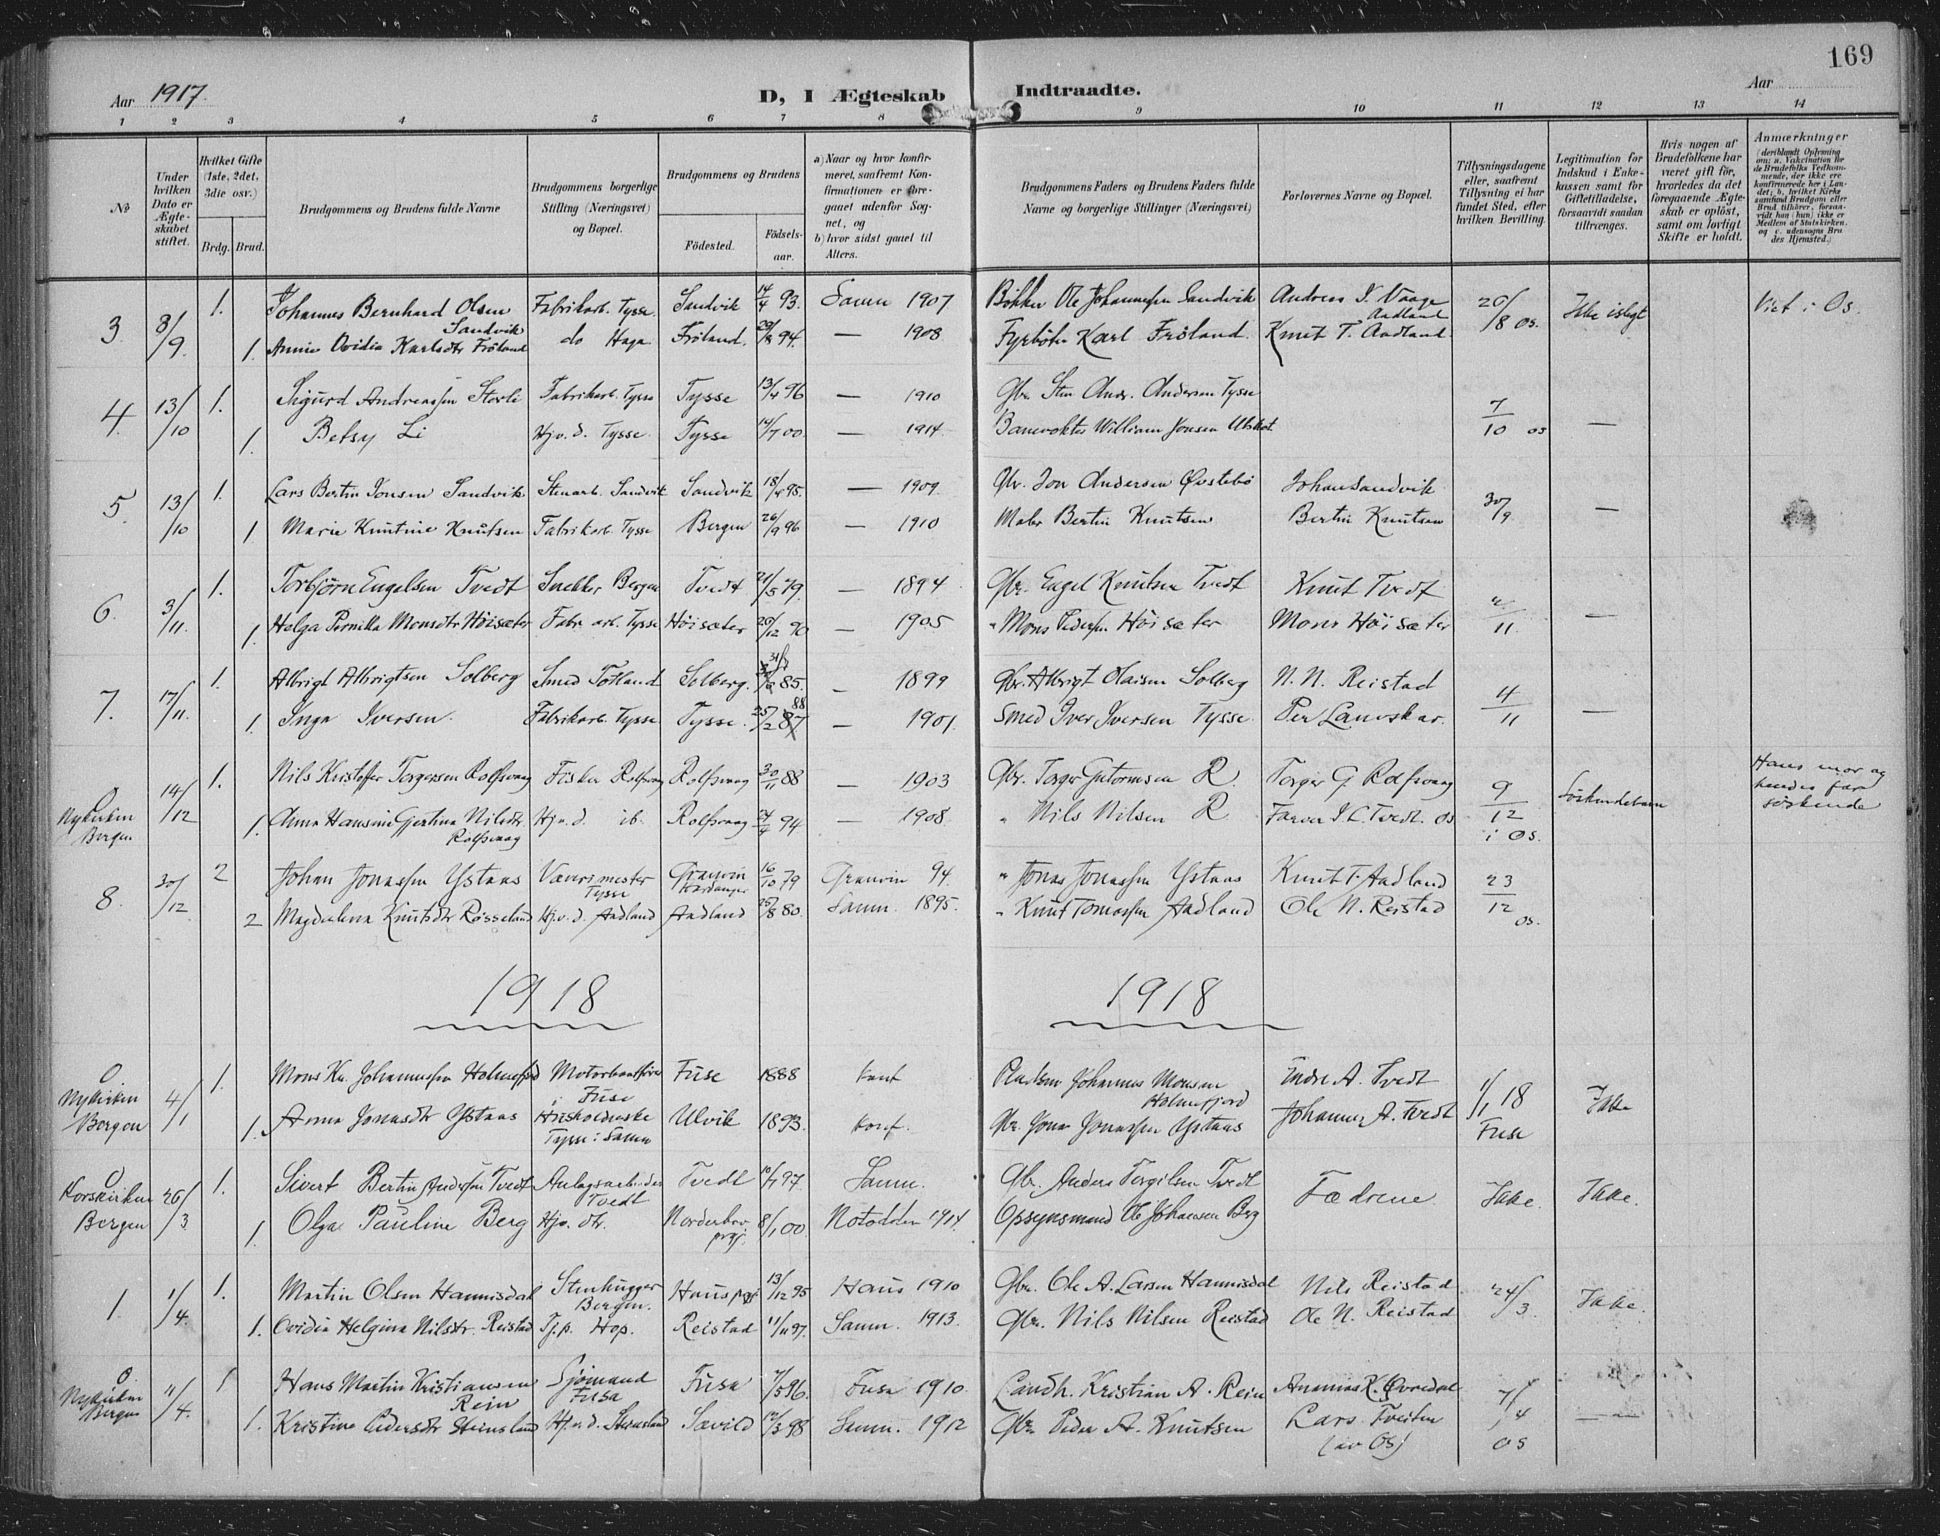 169
Aar 1917.
D, I Ægteskab Indtraadte.
Aar
1 2 3 4 5 6 7 8 9 10 11 12 13 14
No
Under hvilken Dato er Ægteskabet stiftet.
Hvilket Gifte (1ste, 2det, 3die osv.)
Brdg. Brud.
Brudgommens og Brudens fulde Navne
Brudgommens borgerlige Stilling (Næringsvei) og Bopæl.
Brudgommens og Brudens
Fødested. Fødselsaar.
a) Naar og hvor konfirmeret, saafremt Konfirmationen er foregaaet udenfor Sognet, og
b) hvor sidst gaaet til Alters.
Brudgommens Faders og Brudens Faders fulde Navne og borgerlige Stillinger (Næringsvei)
Forlovernes Navne og Bopæl.
Tillysningsdagene eller, saafremt Tillysning ei har fundet Sted, efter hvilken Bevilling.
Legitimation for Indskud i Enkekassen samt for Giftetilladelse, forsaavidt saadan tiltrænges.
Hvis nogen af Brudefolkene har været gift før, hvorledes da det foregaaende Ægteskab er opløst, samt om lovligt Skifte er holdt.
Anmærkninger
3 8/9 1. Johannes Bernhard Olsen Sandvik Fabrikarb. Tysse. Sandvik 14/4 93. Samn 1907 Bøkker Ole Johannessen Sandvik Andreas J. Vaage Aadland 26/8 Os. Ikke isligt Viet i Os.
1. Annie Ovidia Karlsdtr Frøland do Haga Frøland. 29/8 94. — 1908 Fyrbøter Karl Frøland. Knut T. Aadland.
4. 13/10 1. Sigurd Andreassen Storli Fabrikarb. Tysse Tysse 13/4 96 — 1910 Gbr. Sten Andr. Andersen Tysse 7/10 os —
1. Betsy Li Hj.v.d. Tysse. Tysse 14/7 00. — 1914. Banevokter William Jonsen
5. 13/10 1. Lars Bertin Jonsen Sandvik Stenarb. Sandvik Sandvik 18/4 95. — 1909. Gbr. Jon Andersen Øvstebø Johan Sandvik 30/9. —
1 Marie Knutine Knutsen Fabrikarb. Tysse Bergen 26/9 96 — 1910 Maler Bertin Knutsen Bertin Knutsen
6. 3/11. 1. Torbjørn Engelsen Tvedt Snekker Bergen Tvedt 21/5 79. — 1894 Gbr. Engel Knutsen Tvedt Knut Tvedt 11. —
1. Helga Pernilla Monsdtr Høisæter Fabr. arb. Tysse Høisæter 20/12 90 — 1905 " Mons Pedersen Høisæter Mons Høisæter
7. 17/11. 1. Albrigt Albrigtsen Solberg Smed Totland Solberg. 85. — 1899 Gbr. Albrigt Olaisen Solberg N. N. Reistad 4/11 —
1. Inga Iversen. Fabrikarb. Tysse Tysse. 25/2 87 88 — 1901. Smed Iver Iversen Tysse. Per Langskar.
0 Nykirken Bergen 14/12 1. Nils Kristoffer Torgersen Rolfsvaag Fisker Rolfsvaag Rolfsvaag 30/11 88 — 1903 Gbr. Torger Gutormsen R. Torger G Rolfsvaag 9/12 i Os. Søskendebarn Hans mor og hendes far søskende
1. Anna Hansine Gjertina Nilsdtr. Rolfsvaag Hj.v.d. ib. Rolfsvaag 24/4 94 — 1908. " Nils Nilsen R Farver I. C. Tvedt. Os
8. 30/12 2 Johan Jonassen Ystaas Vævrimester Tysse Granvin Hardanger 16/10 79 Granvin 94. " Jonas Jonassen Ystaas Knut T. Aadland 23/12 os.
2 Magdalena Knutsdtr Røsseland Hj.v.d. Aadland Aadland 25/8 80. Samn. 1895. " Knut Tomassen Aadland Ole N. Reistad
1918 1918
0 Nykirken Bergen 4/1 1. Mons Kn. Johannessen Holmefjord Motorbaatfører Fuse Fuse 1888 konf Pladsm Johannes Monsen Holmefjord Endre A. Tvedt 1/1 18 Fuse Ikke
1. Anna Jonasdtr Ystaas Husholderske Tysse i Samn Ulvik 1893. konf. Gbr. Jonas Jonassen Ystaas Johannes A. Tvedt
0 Korskirken Bergen 26/3 1. Sivert Bertin Andersen Tvedt Anlægsarbeider Tvedt Tvedt 10/7 97. Samn. Gbr. Anders Torgilsen Tvedt Fædrene Ikke. Ikke.
1. Olga Pauline Berg Hjv. dtr. Norderhov prgj. 8/1 00 Notodden 1914. Opsynsmand Ole Johansen Berg
1. 1/4. 1. Martin Olsen Hannisdal Stenhugger Bergen. Haus prgj. 13/12 95 Haus 1910 Gbr. Ole A. Larsen Hannisdal Nils Reistad 24/3. Ikke.
1. Ovidia Helgina Nilsdtr. Reistad Tj.p. Hop. Reistad 11/11 97. Samn. 1913. Gbr. Nils Nilsen Reistad Ole N. Reistad
0. Nykirken Bergen 11/4. 1 Hans Martin Kristiansen Rein Sjømand Fusa Fusa 7/5 96. Fusa 1910. Landh. Kristian A. Rein Ananias K. Øvredal 7/4 os —
1. Kristine Pedersdtr Steinsland Hj.v.d. Steinsland Sævild 12/3 98 Samn. 1912 Gbr. Peder A. Knutsen Lars Tveiten (av Os)